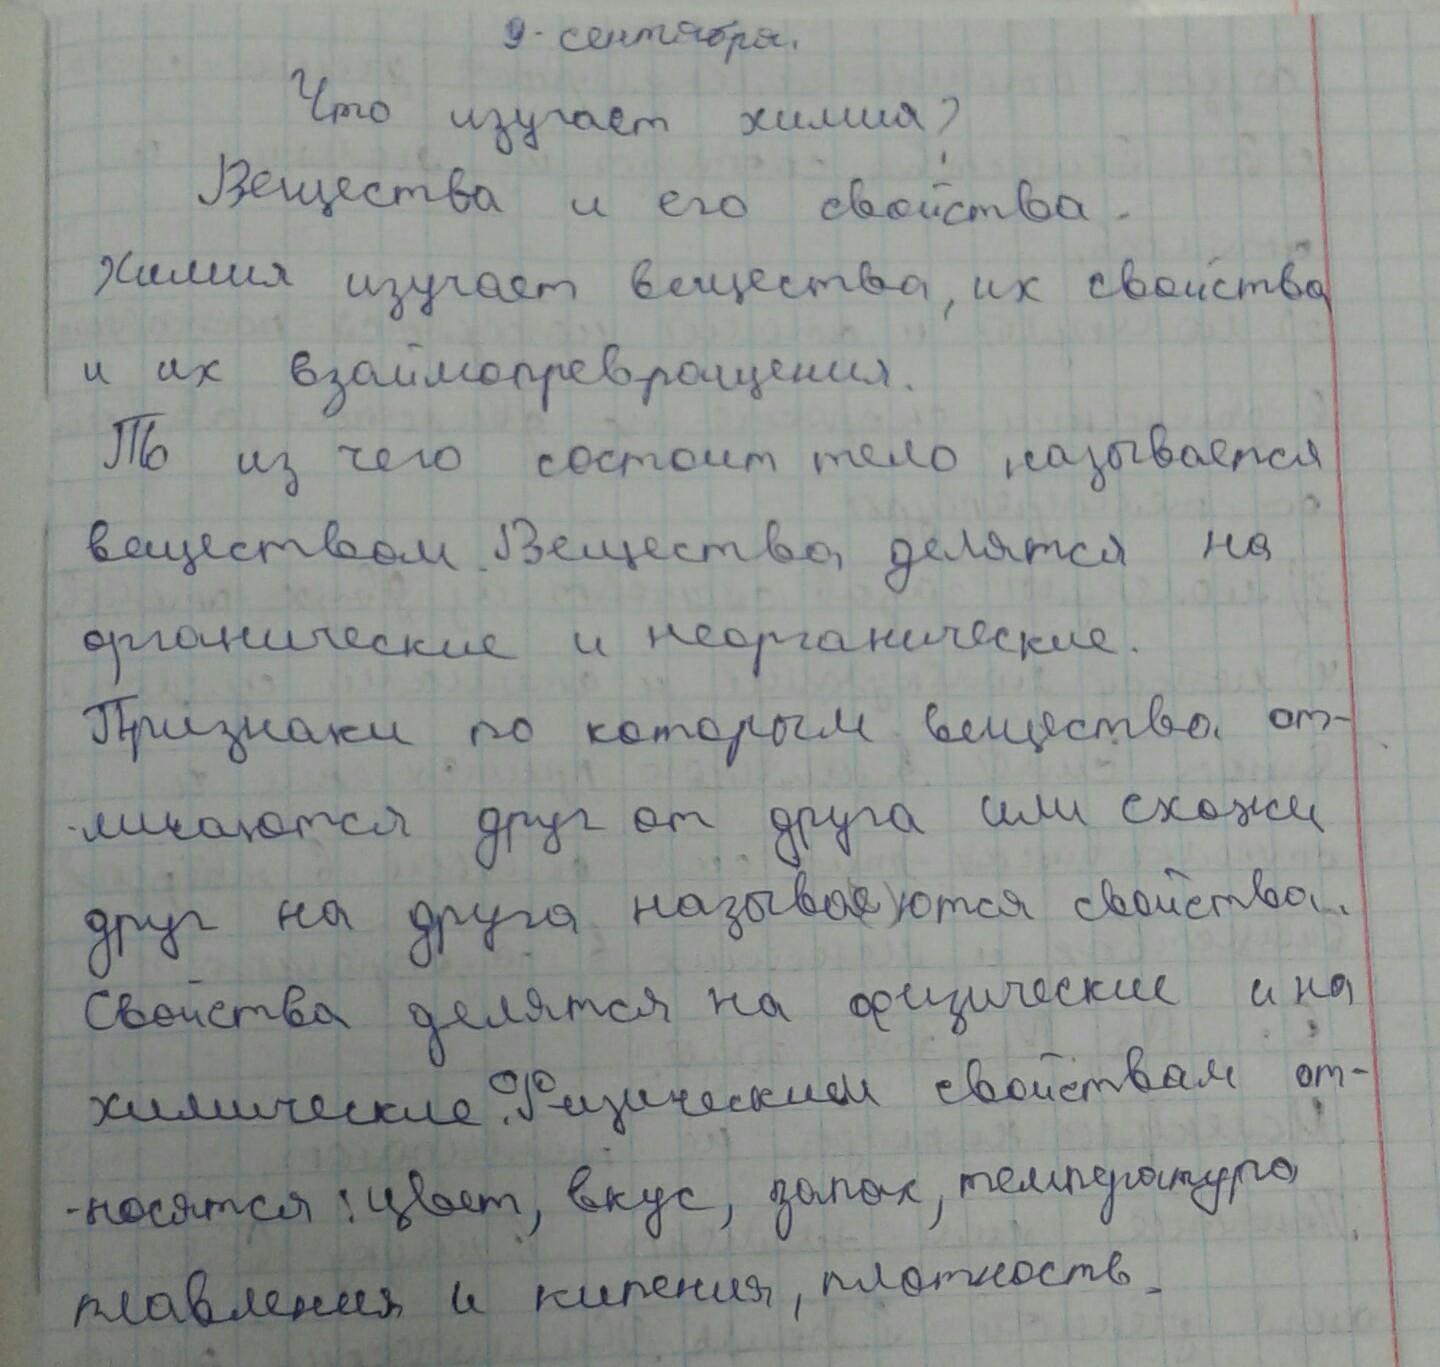 9 - сентября.
Что изучает химия?
Вещества и его свойства.
Химия изучает вещества, их свойства
и их взаймопревращения.
То из чего состоит тело называется
веществом. Вещества делятся на
органические и неорганические.
Признаки по которым вещества от-
-личаются друг от друга или схожи
друг на друга называ(е)ются свойства.
Свойства делятся на физические и на
химические. Физическим свойствам от-
-носятся: цвет, вкус, запах, температура
плавления и кипения, плотность.